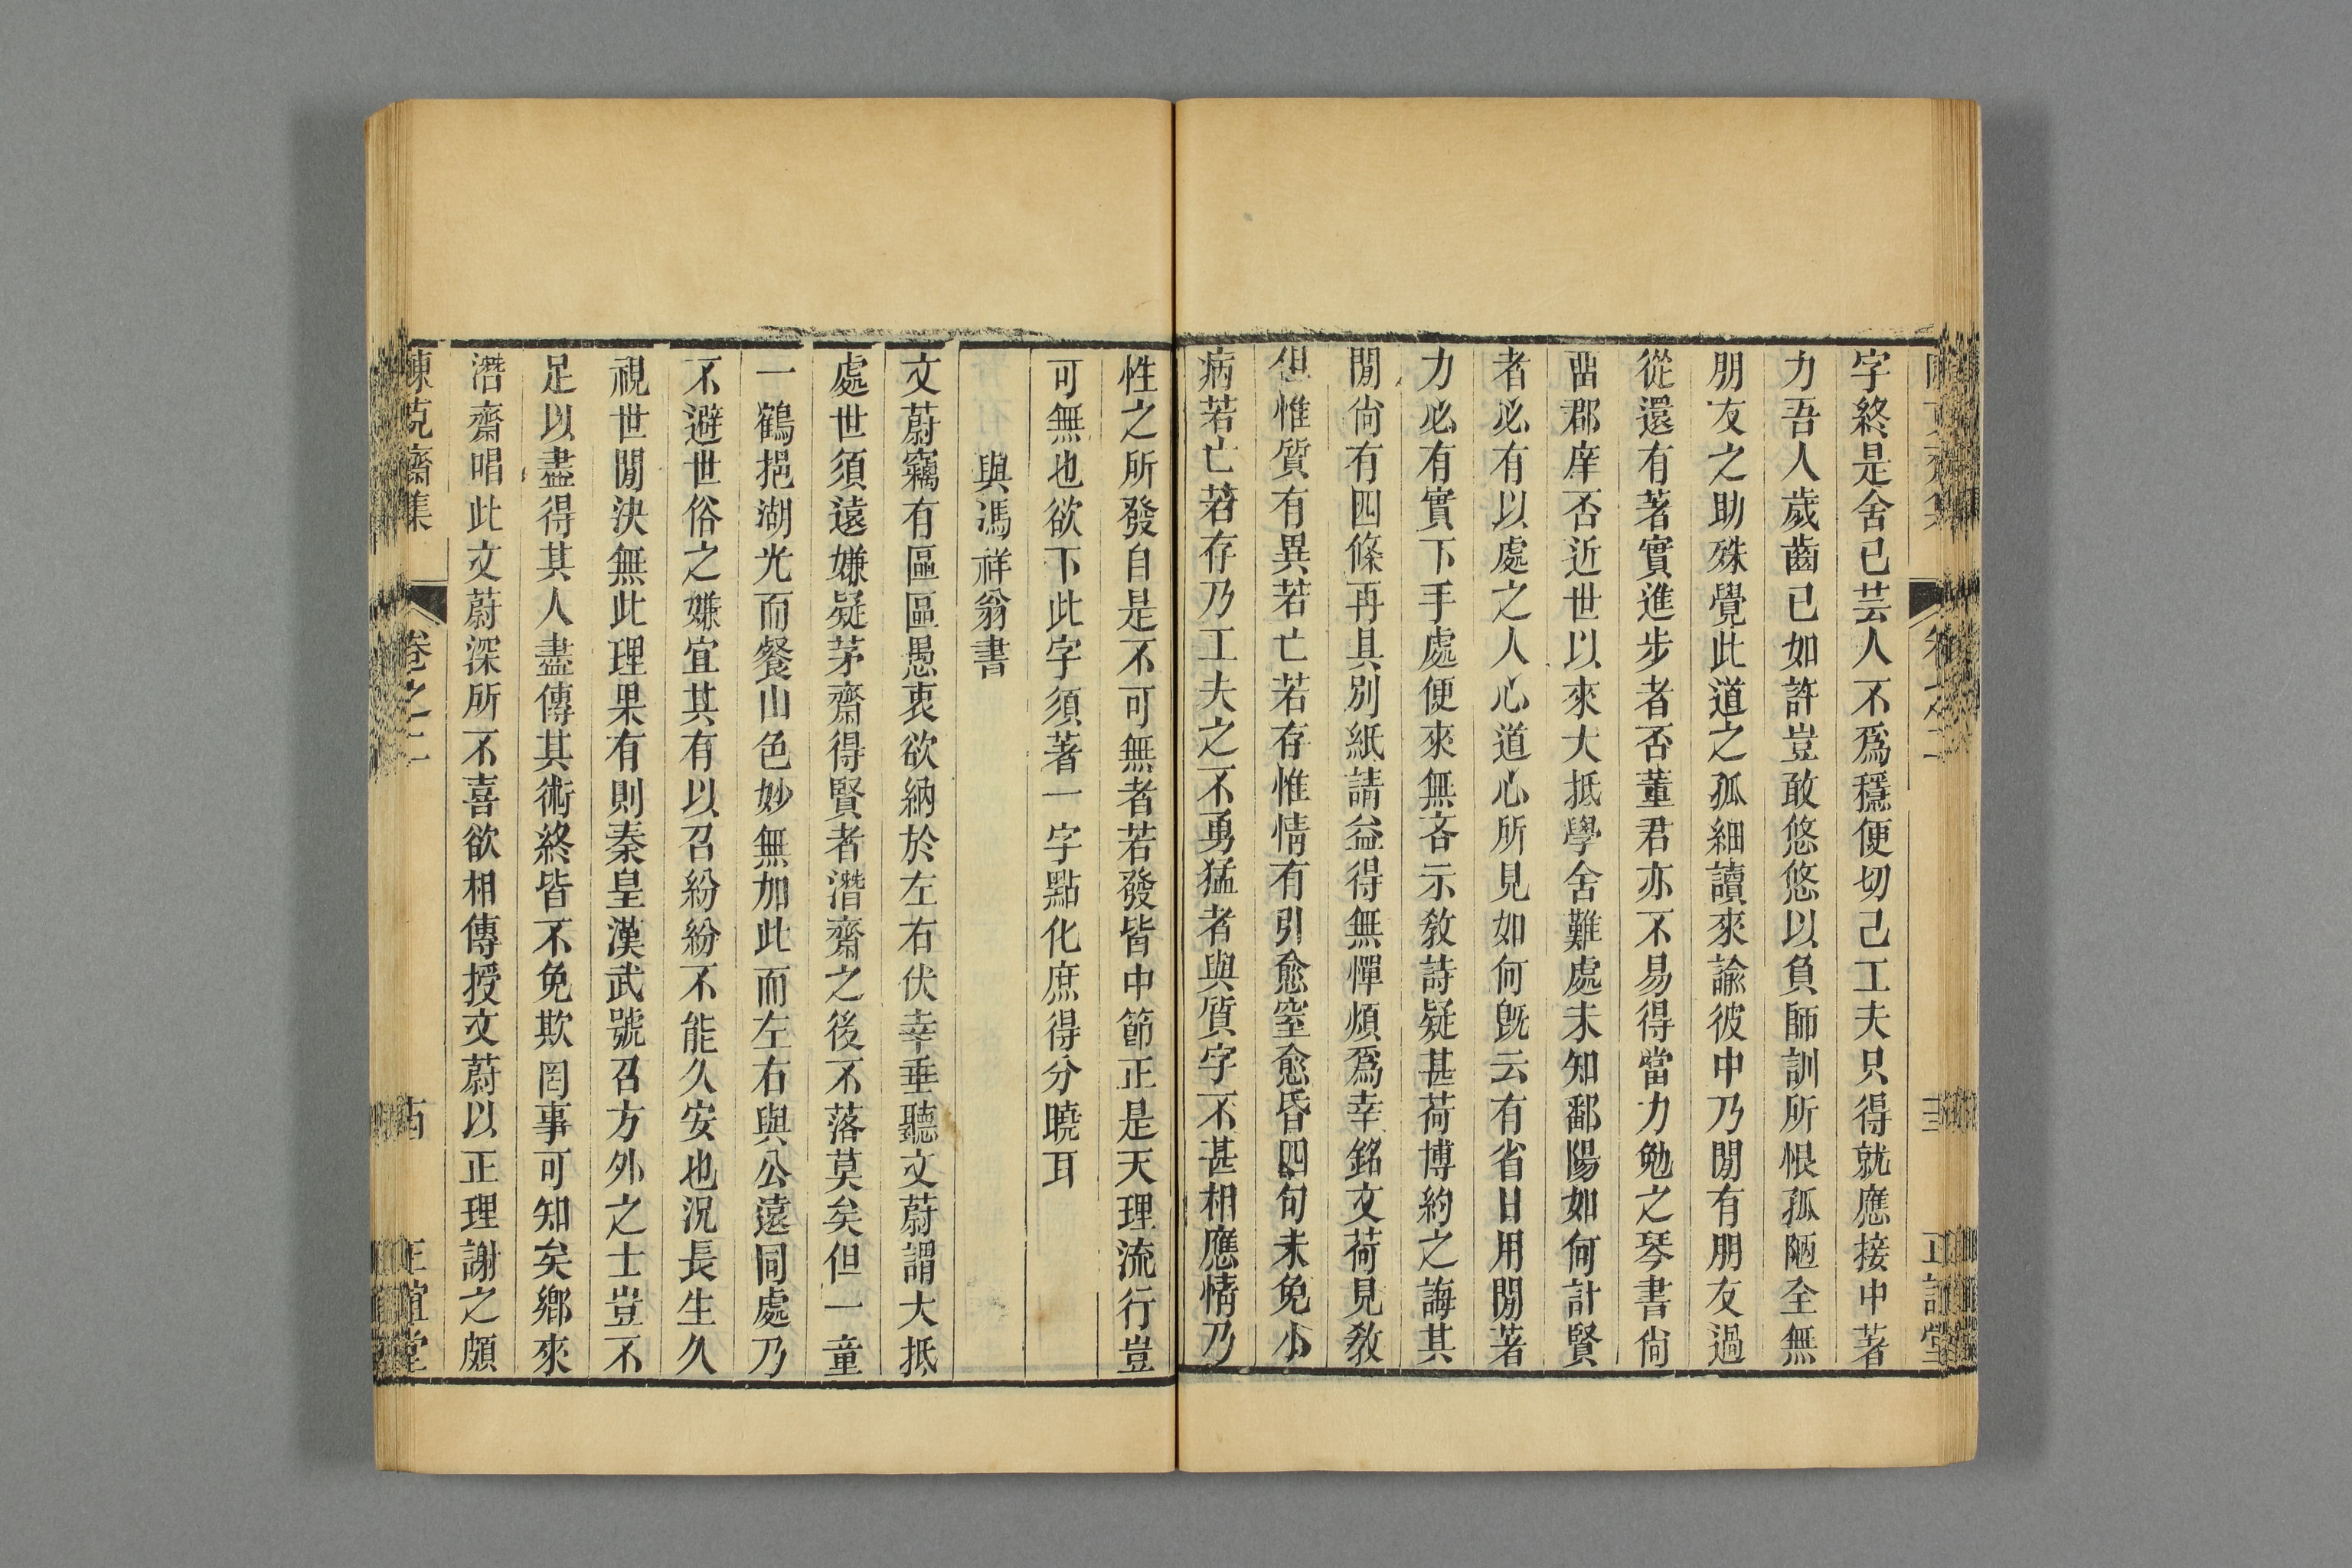 字終是舍己芸人不爲穩便切己工夫只得就應接中著
力吾人歲齒已如許豈敢悠悠以負師訓所恨孤陋全無
朋友之助殊覺此道之孤細讀來諭彼中乃閒有朋友過
從還有著實進步者否董君亦不易得當力勉之琴書尙
畱郡庠否近世以來大抵學舍難處未知鄱陽如何計賢
者必有以處之人心道心所見如何旣云有省日用閒著
力必有實下手處便來無吝示敎詩疑甚荷博約之誨其
閒尙有四條再具別紙請益得無憚煩爲幸銘文荷見敎
但惟質有異若亡若存惟情有引愈窒愈昏四句未免小
病若亡若存乃工夫之不勇猛者與質字不甚相應情乃
性之所發自是不可無者若發皆中節正是天理流行豈
可無也欲下此字須著一字點化庶得分曉耳
與馮祥翁書
文蔚竊有區區愚衷欲納於左右伏幸垂聽文蔚謂大抵
處世須遠嫌疑茅齋得賢者潛齋之後不落莫矣但一童
一鶴挹湖光而餐山色妙無加此而左右與公遠同處乃
不避世俗之嫌宜其有以召紛紛不能久安也況長生久
視世閒決無此理果有則秦皇漢武號召方外之士豈不
足以盡得其人盡傳其術終皆不免欺罔事可知矣鄉來
潛齋唱此文蔚深所不喜欲相傳授文蔚以正理謝之頗
陳克齋集 卷之二 正誼堂